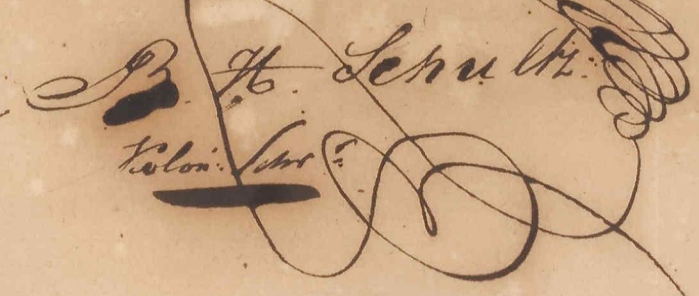 B. H. Schultz:
Kolon: Schr: